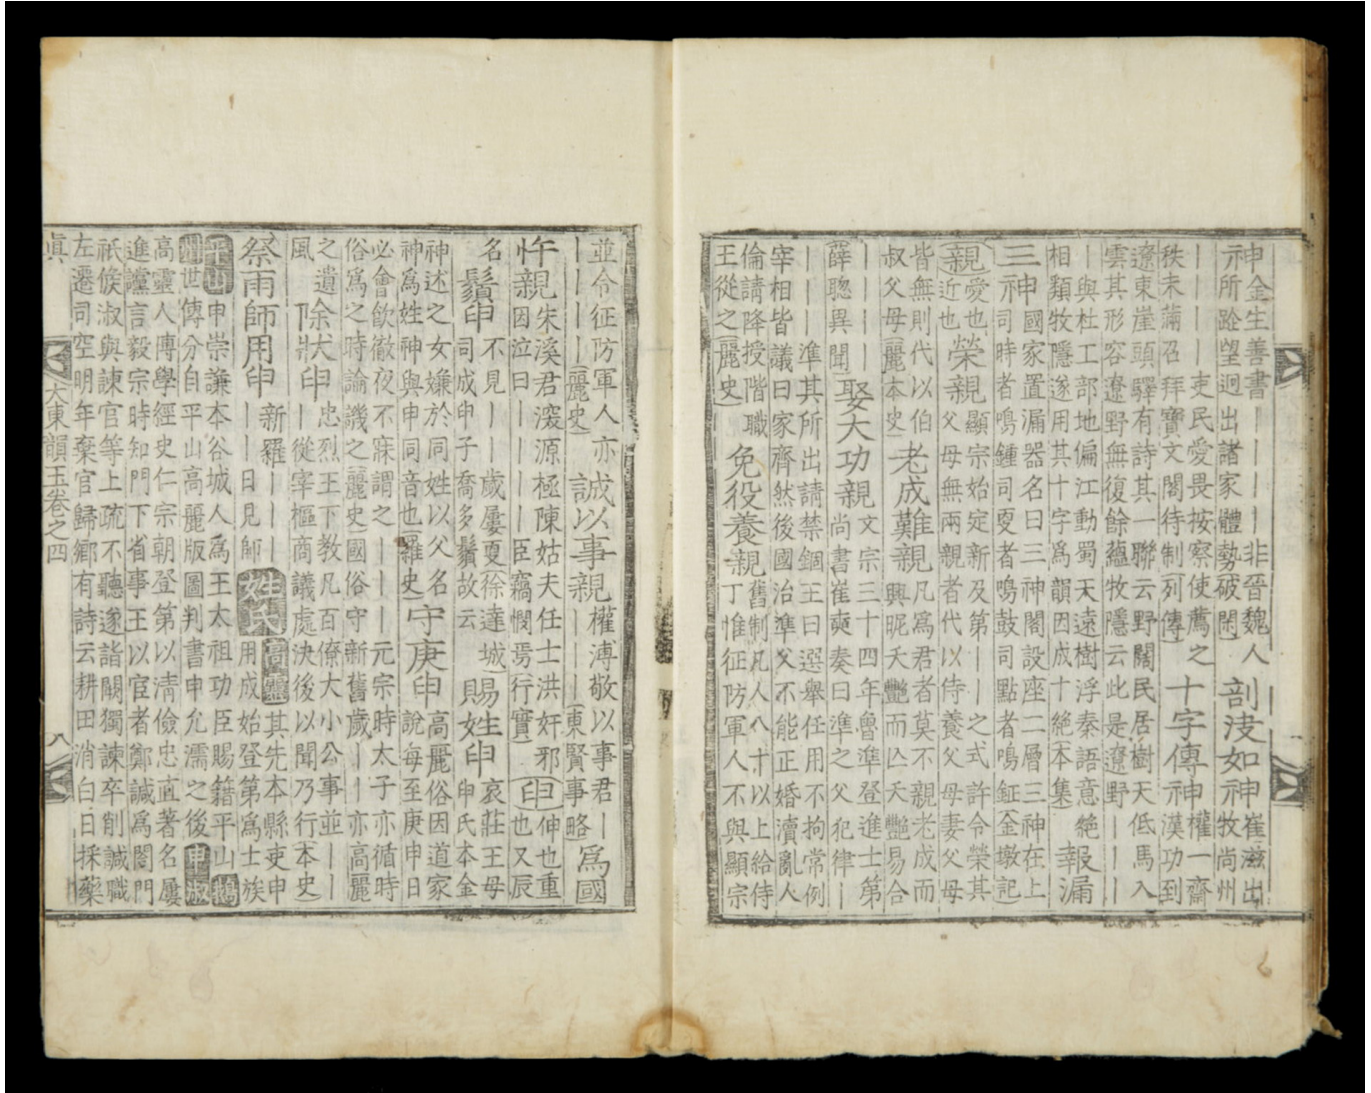 神金生善書｜｜｜｜｜非晉魏人 剖決如神 崔滋出
神所跲望迥出諸家體勢破閑 牧尚州
｜｜｜吏民愛畏按察使薦之 十字傳神 權一齋
秩未滿召拜寶文閣待制列傳 漢功到
遼東崖頭驛有詩其一聯云野闊民居樹天低馬入
雲其形容遼野無復餘蘊牧隱云此是遼野｜｜
｜與杜工部地偏江動蜀天遠樹浮秦語意絶 報漏
相類牧隱遂用其十字爲韻因成十絶本集
三神 國家置漏器名曰三神閣設座二層三神在上
申司時者鳴鍾司更者鳴鼓司點者鳴鉦金墩記
親 愛也 榮親 顯宗始定新及第｜｜之式許令榮其
近也 父母無兩親者代以侍養父母妻父母
皆無則代以伯 老成難親 凡爲君者莫不親老成而
叔父母麗本史 興昵夭艶而亾夭艶易合
｜｜｜｜ 娶大功親 文宗三十四年曾準登進士第
薛聰異聞 尚書崔奭奏曰準之父犯律｜
｜｜｜準其所出請禁錮王曰選舉任用不拘常例
宰相皆議曰家齊然後國治準父不能正婚瀆亂人
倫請降授階職 免役養親 舊制凡人八十以上給侍
王從之麗史 丁惟征防軍人不與顯宗
並令征防軍人亦 誠以事親 權溥敬以事君｜ 爲國
｜｜｜｜麗史 ｜｜｜東賢事略
忤親 朱溪君深源極陳姑夫任士洪奸邪 申 伸也重
因泣曰｜｜｜臣竊憫焉行實 也又辰
名 鬚申 不見｜｜歲屢更徐達城 賜姓申 哀莊王母
司成申子喬多鬚故云 申氏本金
神述之女嫌於同姓以父名 守庚申 高麗俗因道家
神爲姓神與申同音也羅史 說每至庚申日
必會飲徹夜不寐謂之｜｜｜元宗時太子亦循時
俗爲之時論譏之麗史國俗守新舊歲｜｜亦高麗
之遺 除狀申 忠烈王下教凡百僚大小公事並｜
風 ｜從宰樞商議處決後以聞乃行本史
祭雨師用申 新羅｜｜｜ 姓氏 高靈 其先本縣吏申
｜｜日見師 用成始登第爲士族
平山 申崇謙本谷城人爲王太祖功臣賜籍平山 鵝
州 世傳分自平山高麗版圖判書申允濡之後 申淑
高靈人傳學經史仁宗朝登第以清儉忠直著名屢
進讜言毅宗時知門下省事王以宦者鄭諴爲閤門
祗候淑與諫官等上疏不聽遂詣闕獨諫卒削諴職
左遷司空明年棄官歸鄉有詩云耕田消白日採藥
眞 大東韻玉卷之四 八